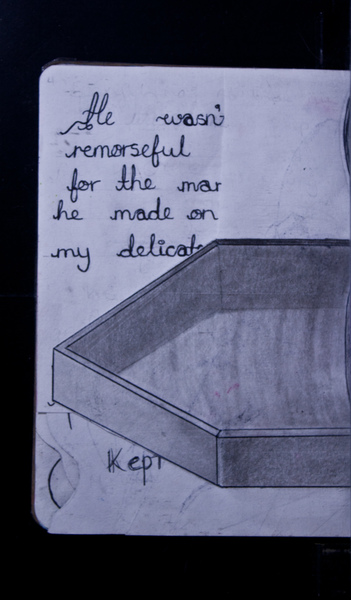 He wasn'
remorseful
for the mar
he made on
my delicate
Kept